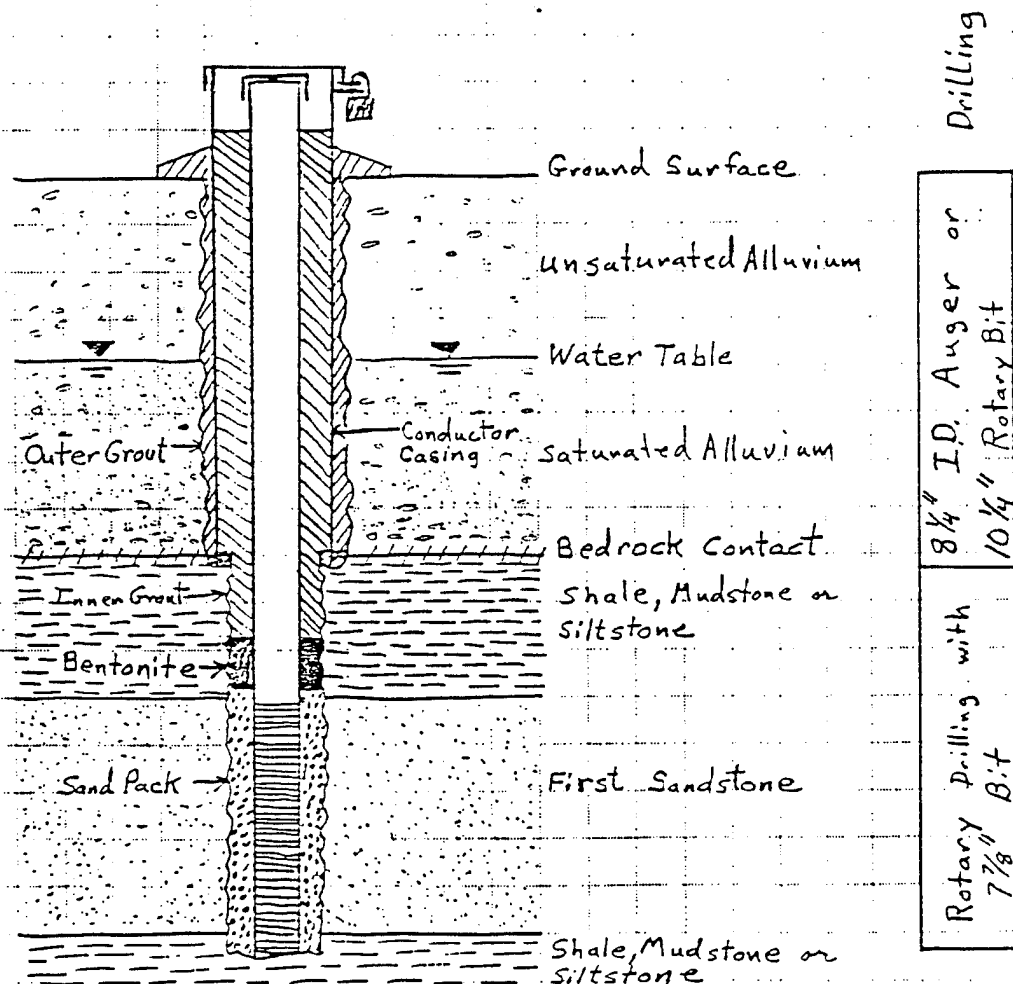 Drilling
Ground Surface
Unsaturated Alluvium
Water Table
Outer Grout
Conductor
Casing
Saturated Alluvium
Bedrock Contact
Inner Grout
Shale, Mudstone or
Siltstone
Bentonite
Sand Pack
First Sandstone
Shale, Mudstone or
Siltstone
8¼" I.D. Auger or
10¼" Rotary Bit
Rotary Drilling with
7⅞" Bit